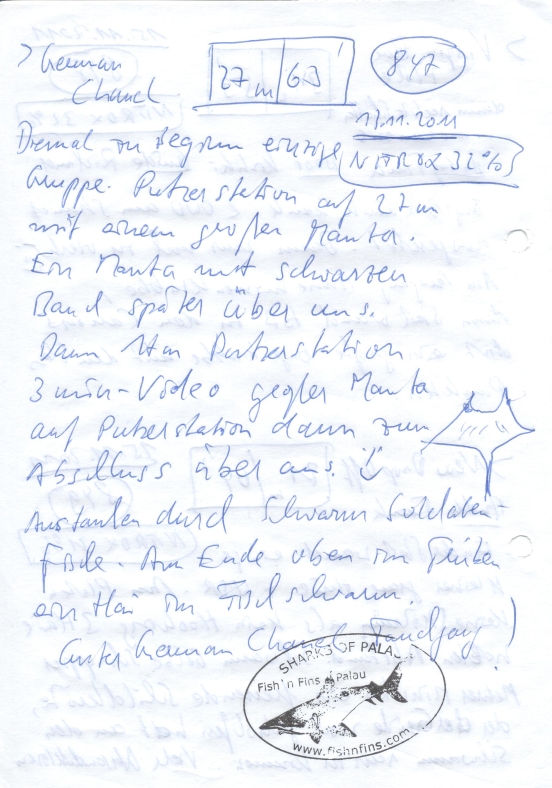 > German
Chanel
27m 63'
847
11.11.2011
NITROX 32%
Diemal zu Beginn einzige
Gruppe. Putzerstation auf 27m
mit einem großen Manta.
Ein Manta mit schwarzen
Band später über uns.
Dann Putzerstation
3 min-Video großer Manta
auf Putzerstation dann zum
Abschluss über uns.
Austauchen durch Schwarm Soldaten-
fische. Am Ende oben im Trüben
ein Hai im Fischschwarm.
Guter German Chanel Tauchgang!
SHARKS OF PALAU
Fish'n Fins Palau
www.fishnfins.com